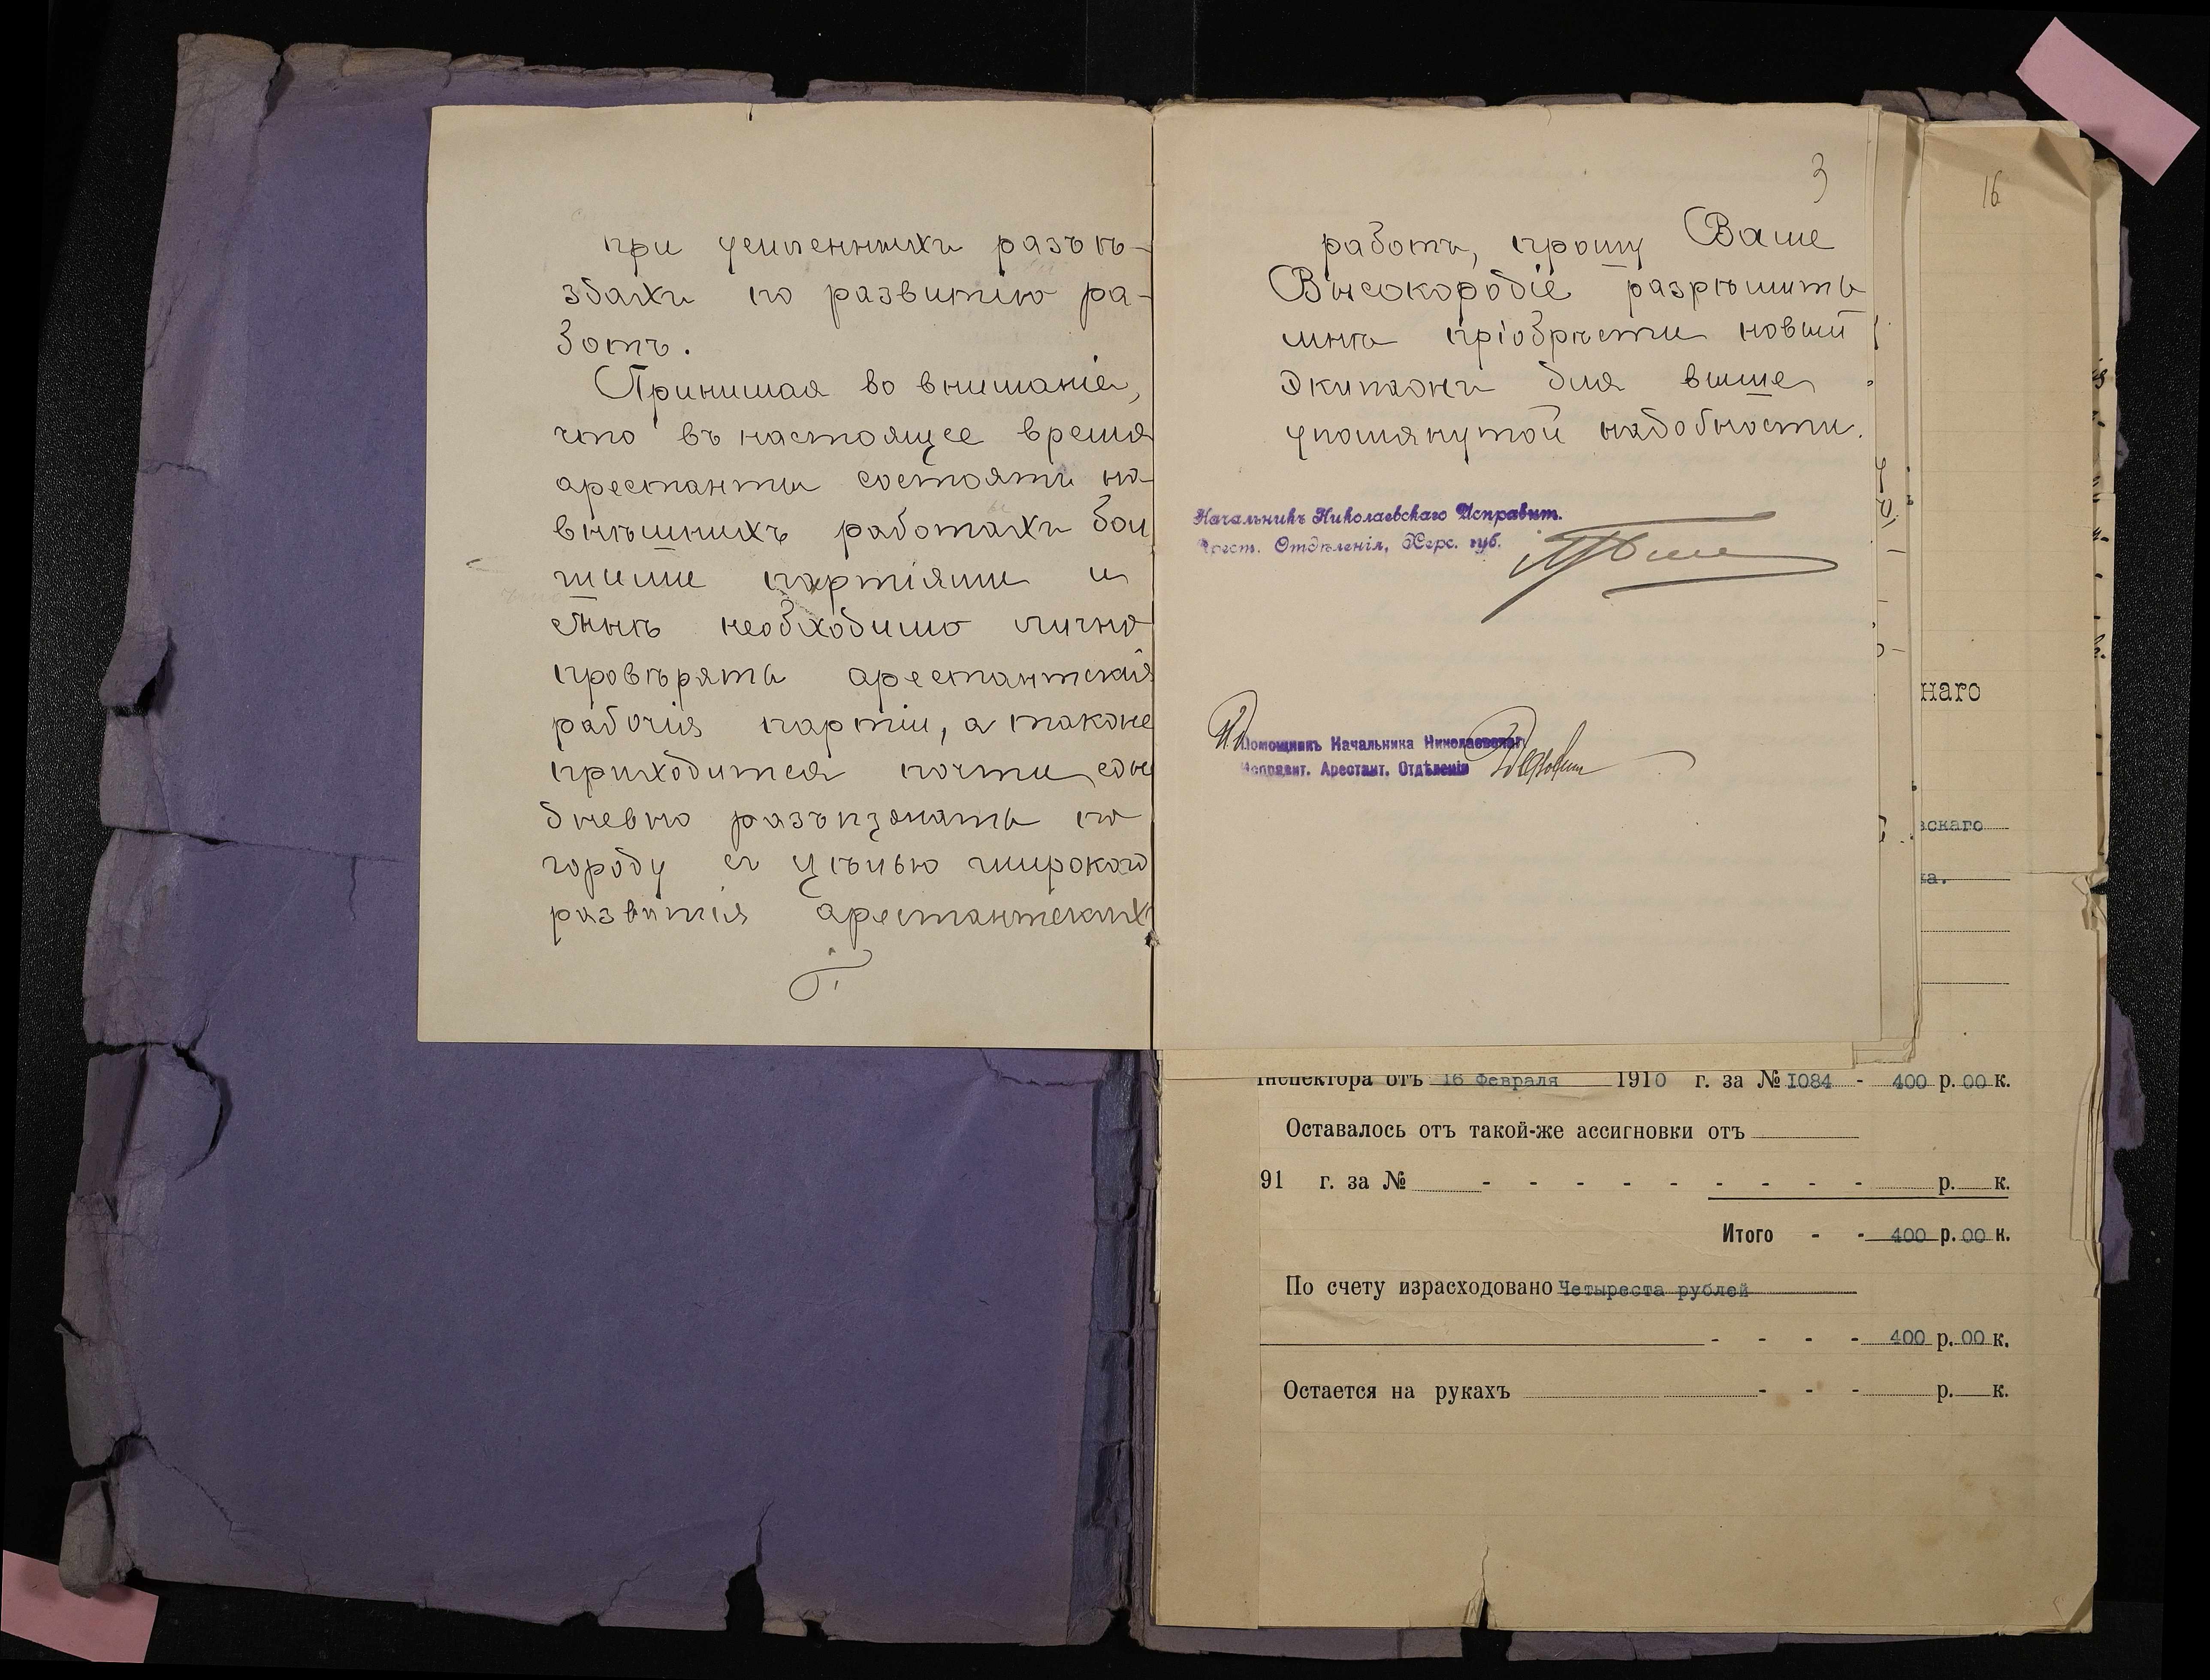 при усиленныхъ разъѣ-
здахъ по развитію ра-
ботъ.
Принимая во вниманіе,
что въ настоящее время
арестанты состоятъ на
внѣшнихъ работахъ бол
шими партіями и
мнѣ необходимо лично
провѣрять арестантскія
рабочія партіи, а также
приходится почти еже
дневно разъѣзжать по
городу съ цѣлью широкаго
развитія арестантскихъ
3
работъ, прошу Ваше
Высокородіе разрѣшить
мнѣ пріобрѣсти новый
экипажъ для выше
упомянутой надобности.
Начальникъ Николаевскаго Исправит.
Арест. Отдѣленія, Херс. губ.
Помощникъ Начальника Николаевскаго
Исправит. Арестант. Отдѣленія
16
наго
вскаго
ка.
Инспектора отъ 16 Февраля 1910 г. за № 1084 - 400 р. 00 к.
Оставалось отъ такой-же ассигновки отъ
91 г. за № - - - - - - - - - р. к.
Итого - - 400 р. 00 к.
По счету израсходовано Четыреста рублей
- - - - 400 р. 00 к.
Остается на рукахъ - - - р. к.